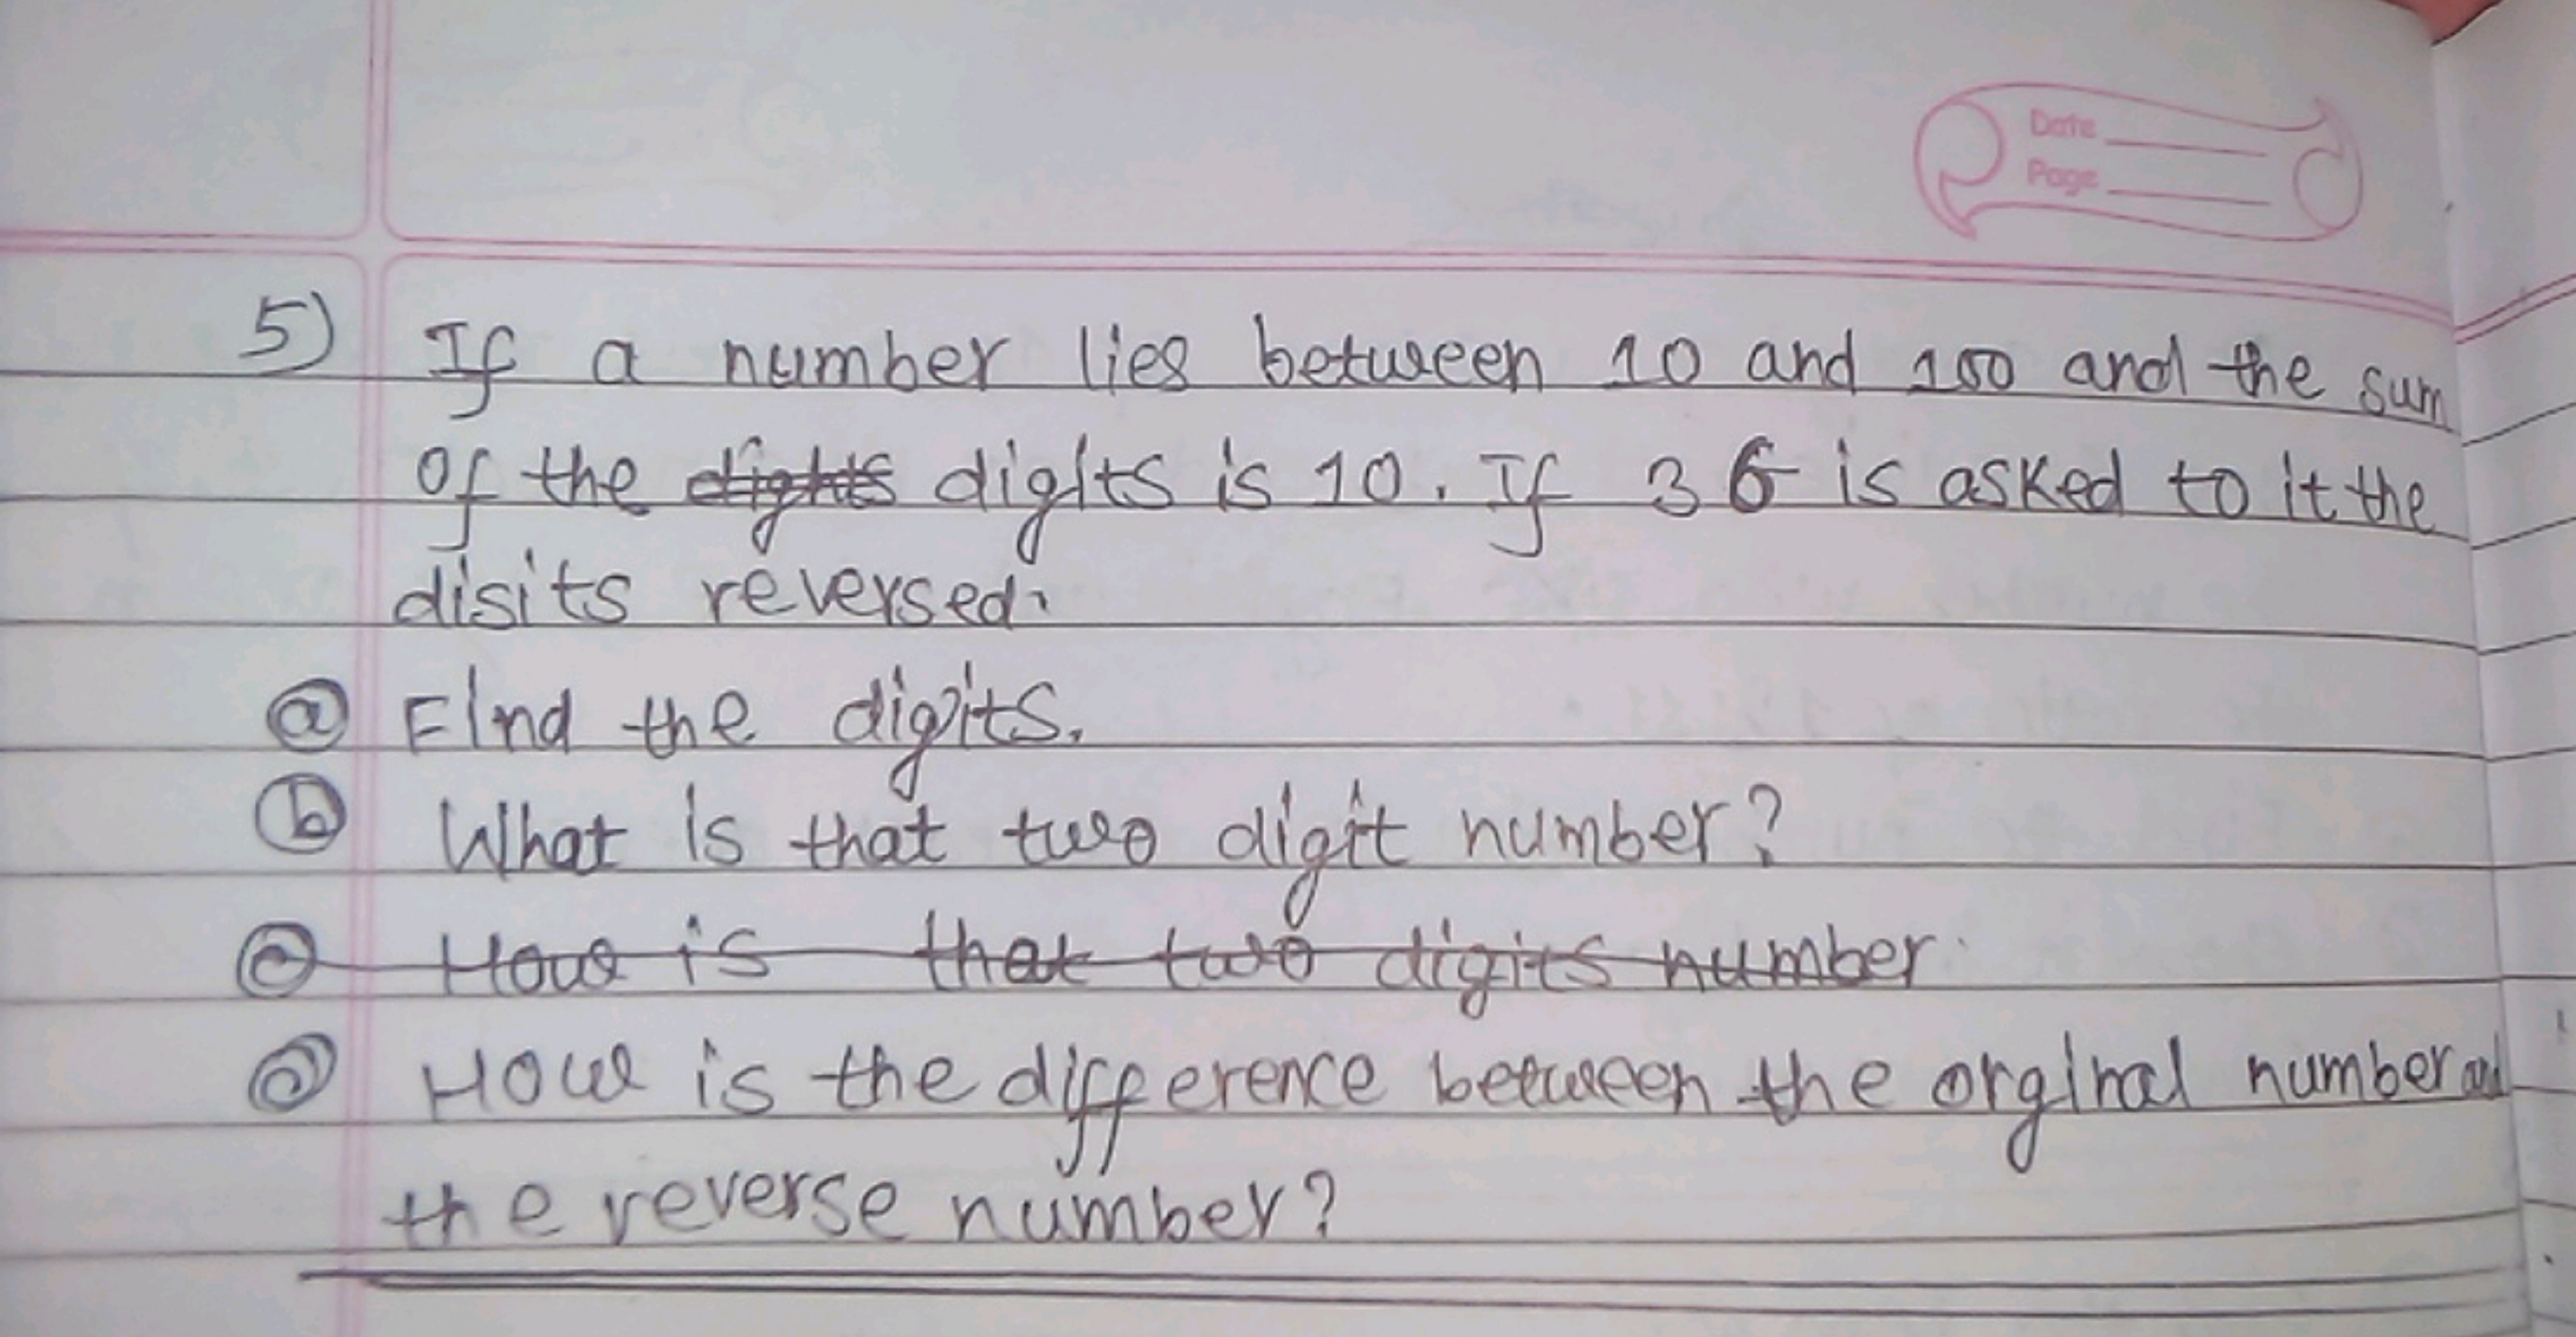 Date
Page
5) If a number lies between 10 and 100 and the sum
of the dights digits is 10. If 36 is asked to it the
disits reversed.
a Find the digits.
b What is that two digit number?
c How is that two digits number.
c How is the difference between the orginal number and
the reverse number?